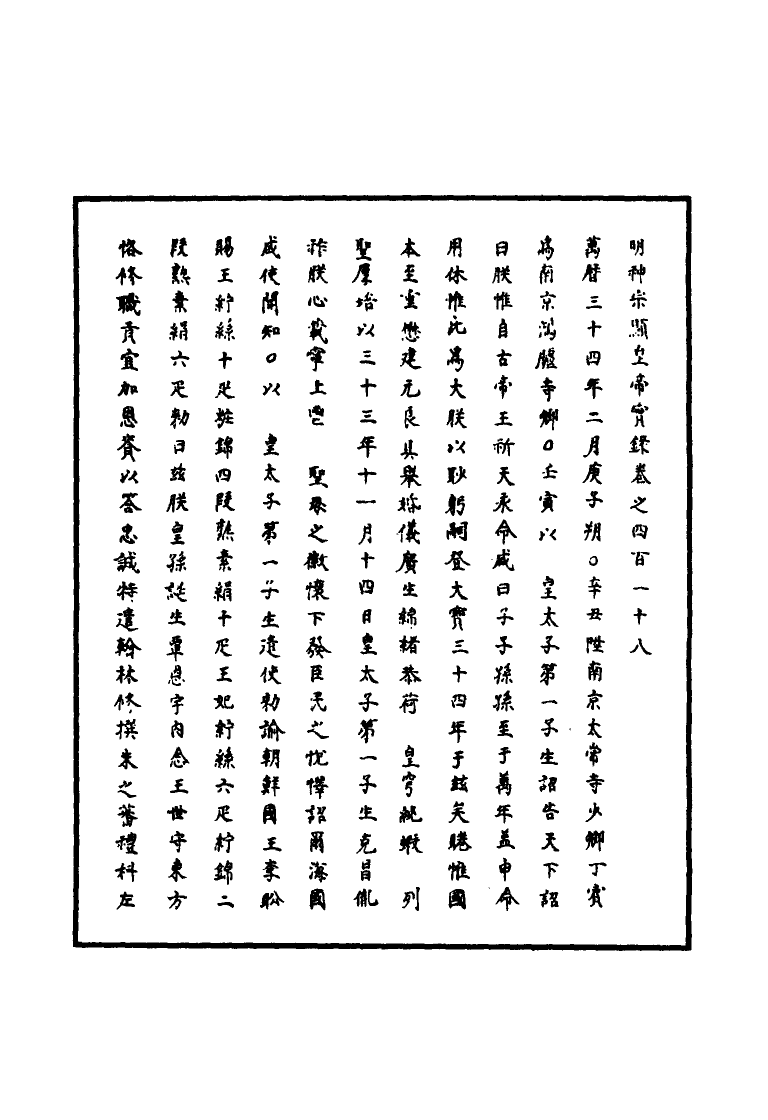 明神宗顯皇帝實錄卷之四百一十八
萬曆三十四年二月庚子朔○辛丑陞南京太常寺少卿丁賓
為南京鴻臚寺卿○壬寅以　皇太子第一子生詔告天下詔
曰朕惟自古帝王祈天永命咸曰子子孫孫至于萬年益申命
用休惟此為大朕以眇躬嗣登大寶三十四年于玆矣睠惟國
本至重懋建元良具舉婚儀廣生綿緒恭荷　皇穹純嘏　列
聖厚培以三十三年十一月十四日皇太子第一子生克昌胤
祚朕心載寧上慰　聖母之徽懷下發臣民之忱懌詔爾海國
咸使聞知○以　皇太子第一子生遣使勅諭朝鮮國王李昖
賜王紵絲十疋粧錦四段熟素絹十疋王妃紵絲六疋紵錦二
段熟素絹六疋勅曰玆朕皇孫誕生覃恩宇內念王世守東方
恪修職貢宜加恩賚以答忠誠特遣翰林修撰朱之蕃禮科左